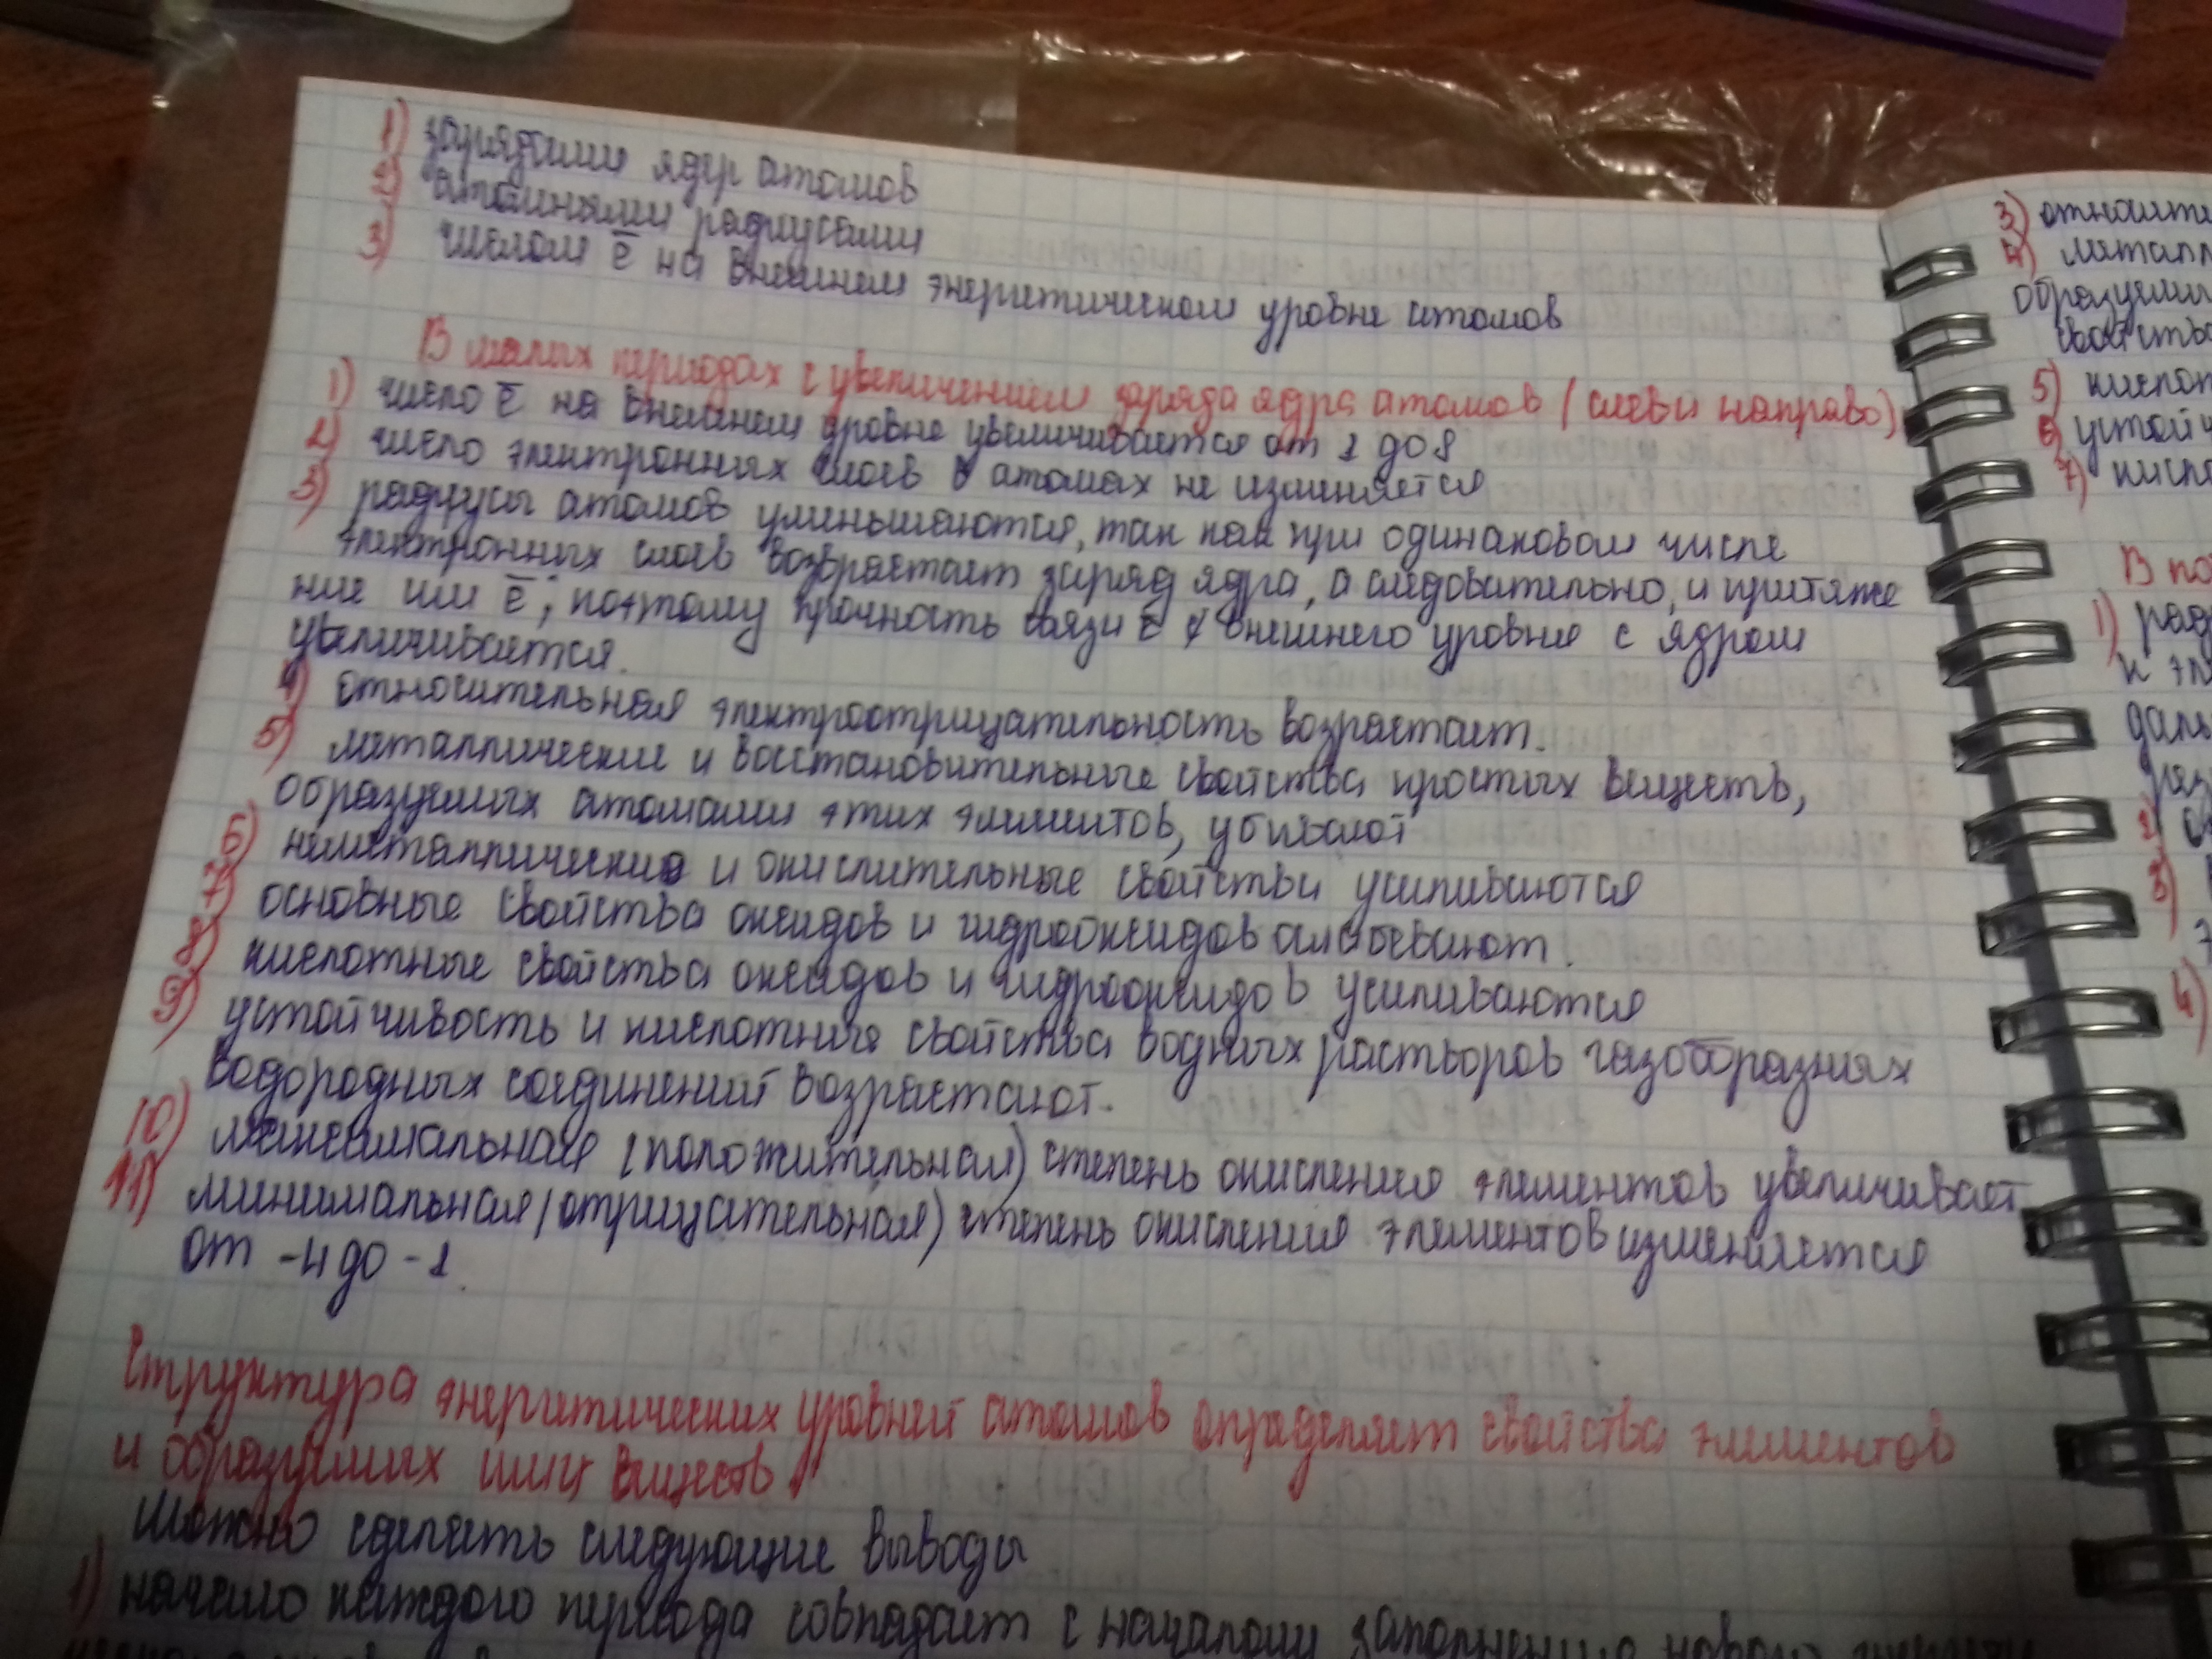 1) зарядами ядер атомов
2) атомными радиусами
3) числом ē на внешнем энергетическом уровне атомов
В малых периодах с увеличением заряда ядра атомов (слева направо)
1) число ē на внешнем уровне увеличивается от 1 до 8
2) число электронных слоев в атомах не изменяется
3) радиусы атомов уменьшаются, так как при одинаковом числе
электронных слоев возврастает заряд ядра, а следовательно, и притяже
ние им ē; поэтому прочность связи ē внешнего уровня с ядром
увеличивается.
4) относительная электроотрицательность возрастает.
5) металлические и восстановительные свойства простых веществ,
образуемых атомами этих элементов, убывают
6) неметаллические и окислительные свойства усиливаются
7) основные свойства оксидов и гидроксидов ослабевают.
8) кислотные свойства оксидов и гидроксидов усиливаются
9) устойчивость и кислотные свойства водных растворов газообразных
водородных соединений возрастают.
10) максимальная (положительная) степень окисления элементов увеличивает
11) минимальная (отрицательная) степень окисления элементов изменяется
от -4 до -1
Структура энергетических уровней атомов определяет свойства элементов
и образуемых ими веществ.
Можно сделать следующие выводы
1) начало каждого периода совпадает с началом заполнения нового
3)
4)
5)
6)
7)
1)
к
2)
3)
4)